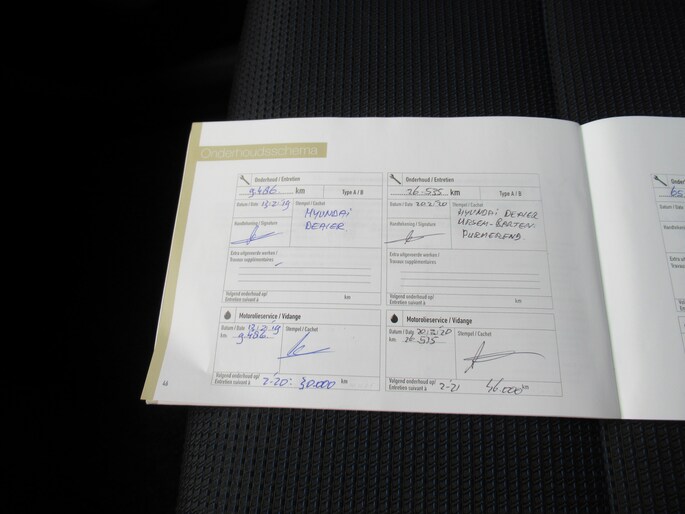 Onderhoudsschema
Onderhoud / Entretien
9.486 km Type A / B
Datum / Date 13-2-'19 Stempel / Cachet
HYUNDAI
DEALER
Handtekening / Signature
Extra uitgevoerde werken /
Travaux supplémentaires
Volgend onderhoud op/
Entretien suivant à km
Motorolieservice / Vidange
Datum / Date 13-2-'19 Stempel / Cachet
km 9.486
Volgend onderhoud op/
Entretien suivant à 2-'20: 30.000 km
Onderhoud / Entretien
26-535 km Type A / B
Datum / Date 20.2.'20 Stempel / Cachet
HYUNDAI DEALER
PURMEREND.
Handtekening / Signature
Extra uitgevoerde werken /
Travaux supplémentaires
Volgend onderhoud op/
Entretien suivant à km
Motorolieservice / Vidange
Datum / Date 20.2.'20 Stempel / Cachet
km 26-535
Volgend onderhoud op/
Entretien suivant à 2-21 46.000 km
66